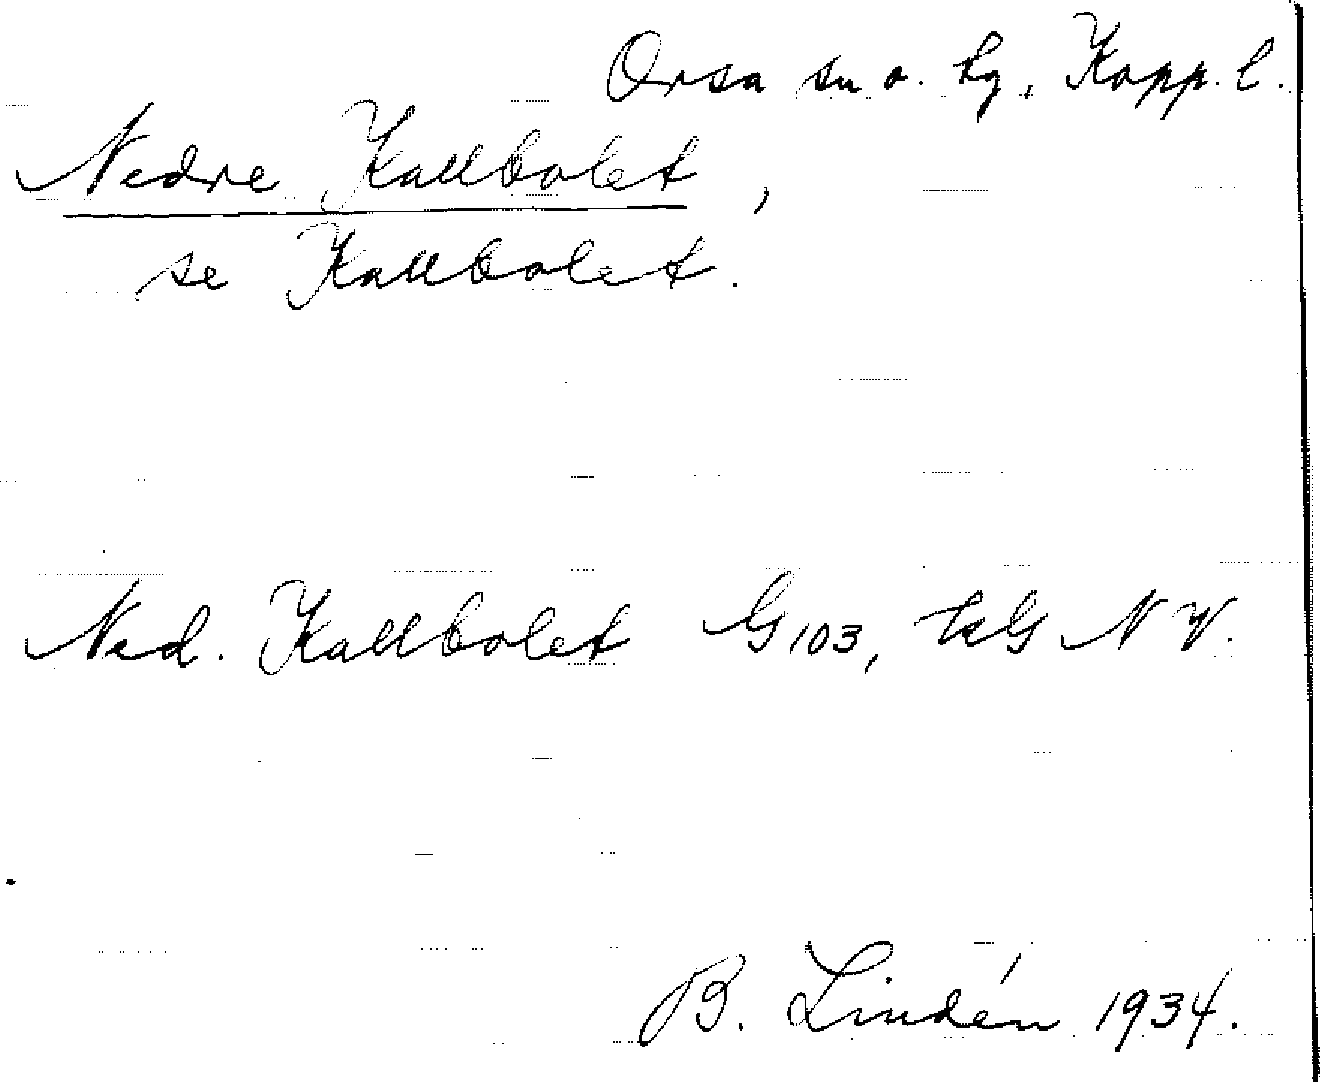 Orsa sn o. hg, Kopp. l.
Nedre Kallbolet,
se Kallbolet.
Ned. Kallbolet G103, NV.
B. Lindén 1934.